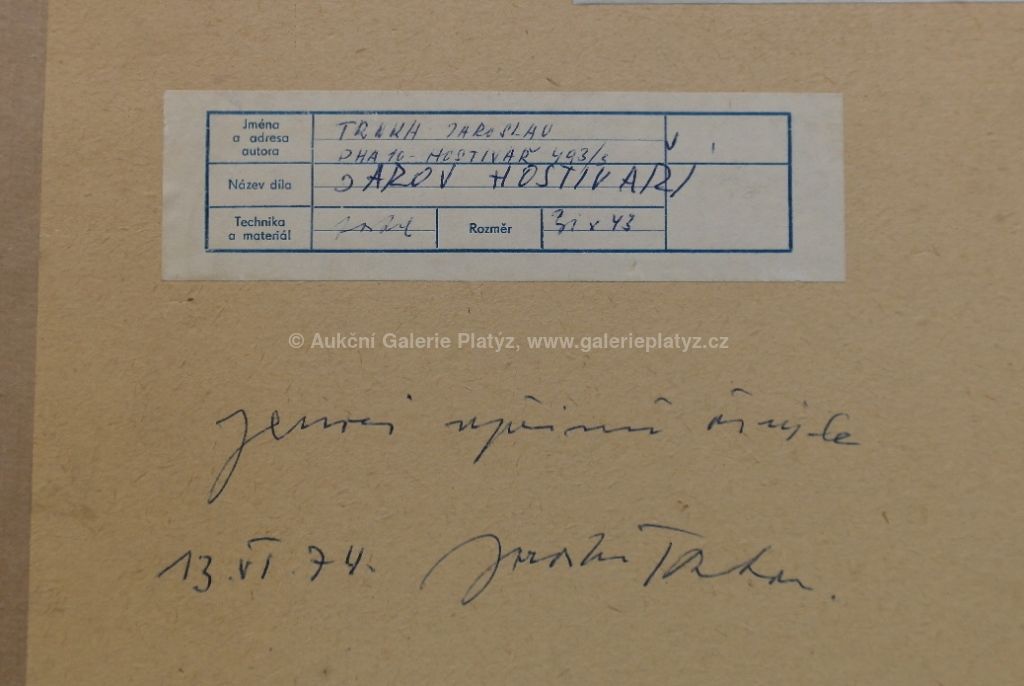 Jména
a adresa
autora
TRNKA JAROSLAV
PHA 10 - HOSTIVAŘ 493/
Název díla
HOSTIVAŘI
Technika
a materiál
Rozměr
31 x 43
© Aukční Galerie Platýz, www.galerieplatyz.cz
upřímně
13. VI. 74. Jaroslav Trnka.